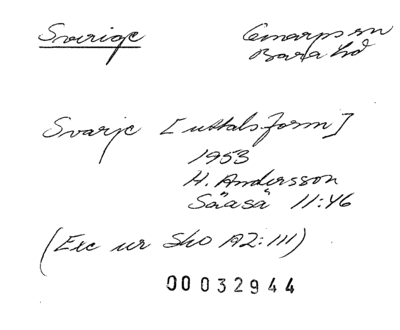 Sverige
Genarps sn
Bara hd
Svarje [uttalsform]
1953
H. Andersson
Sååså 11:46
(Exc ur Sho A2:III)
00032944